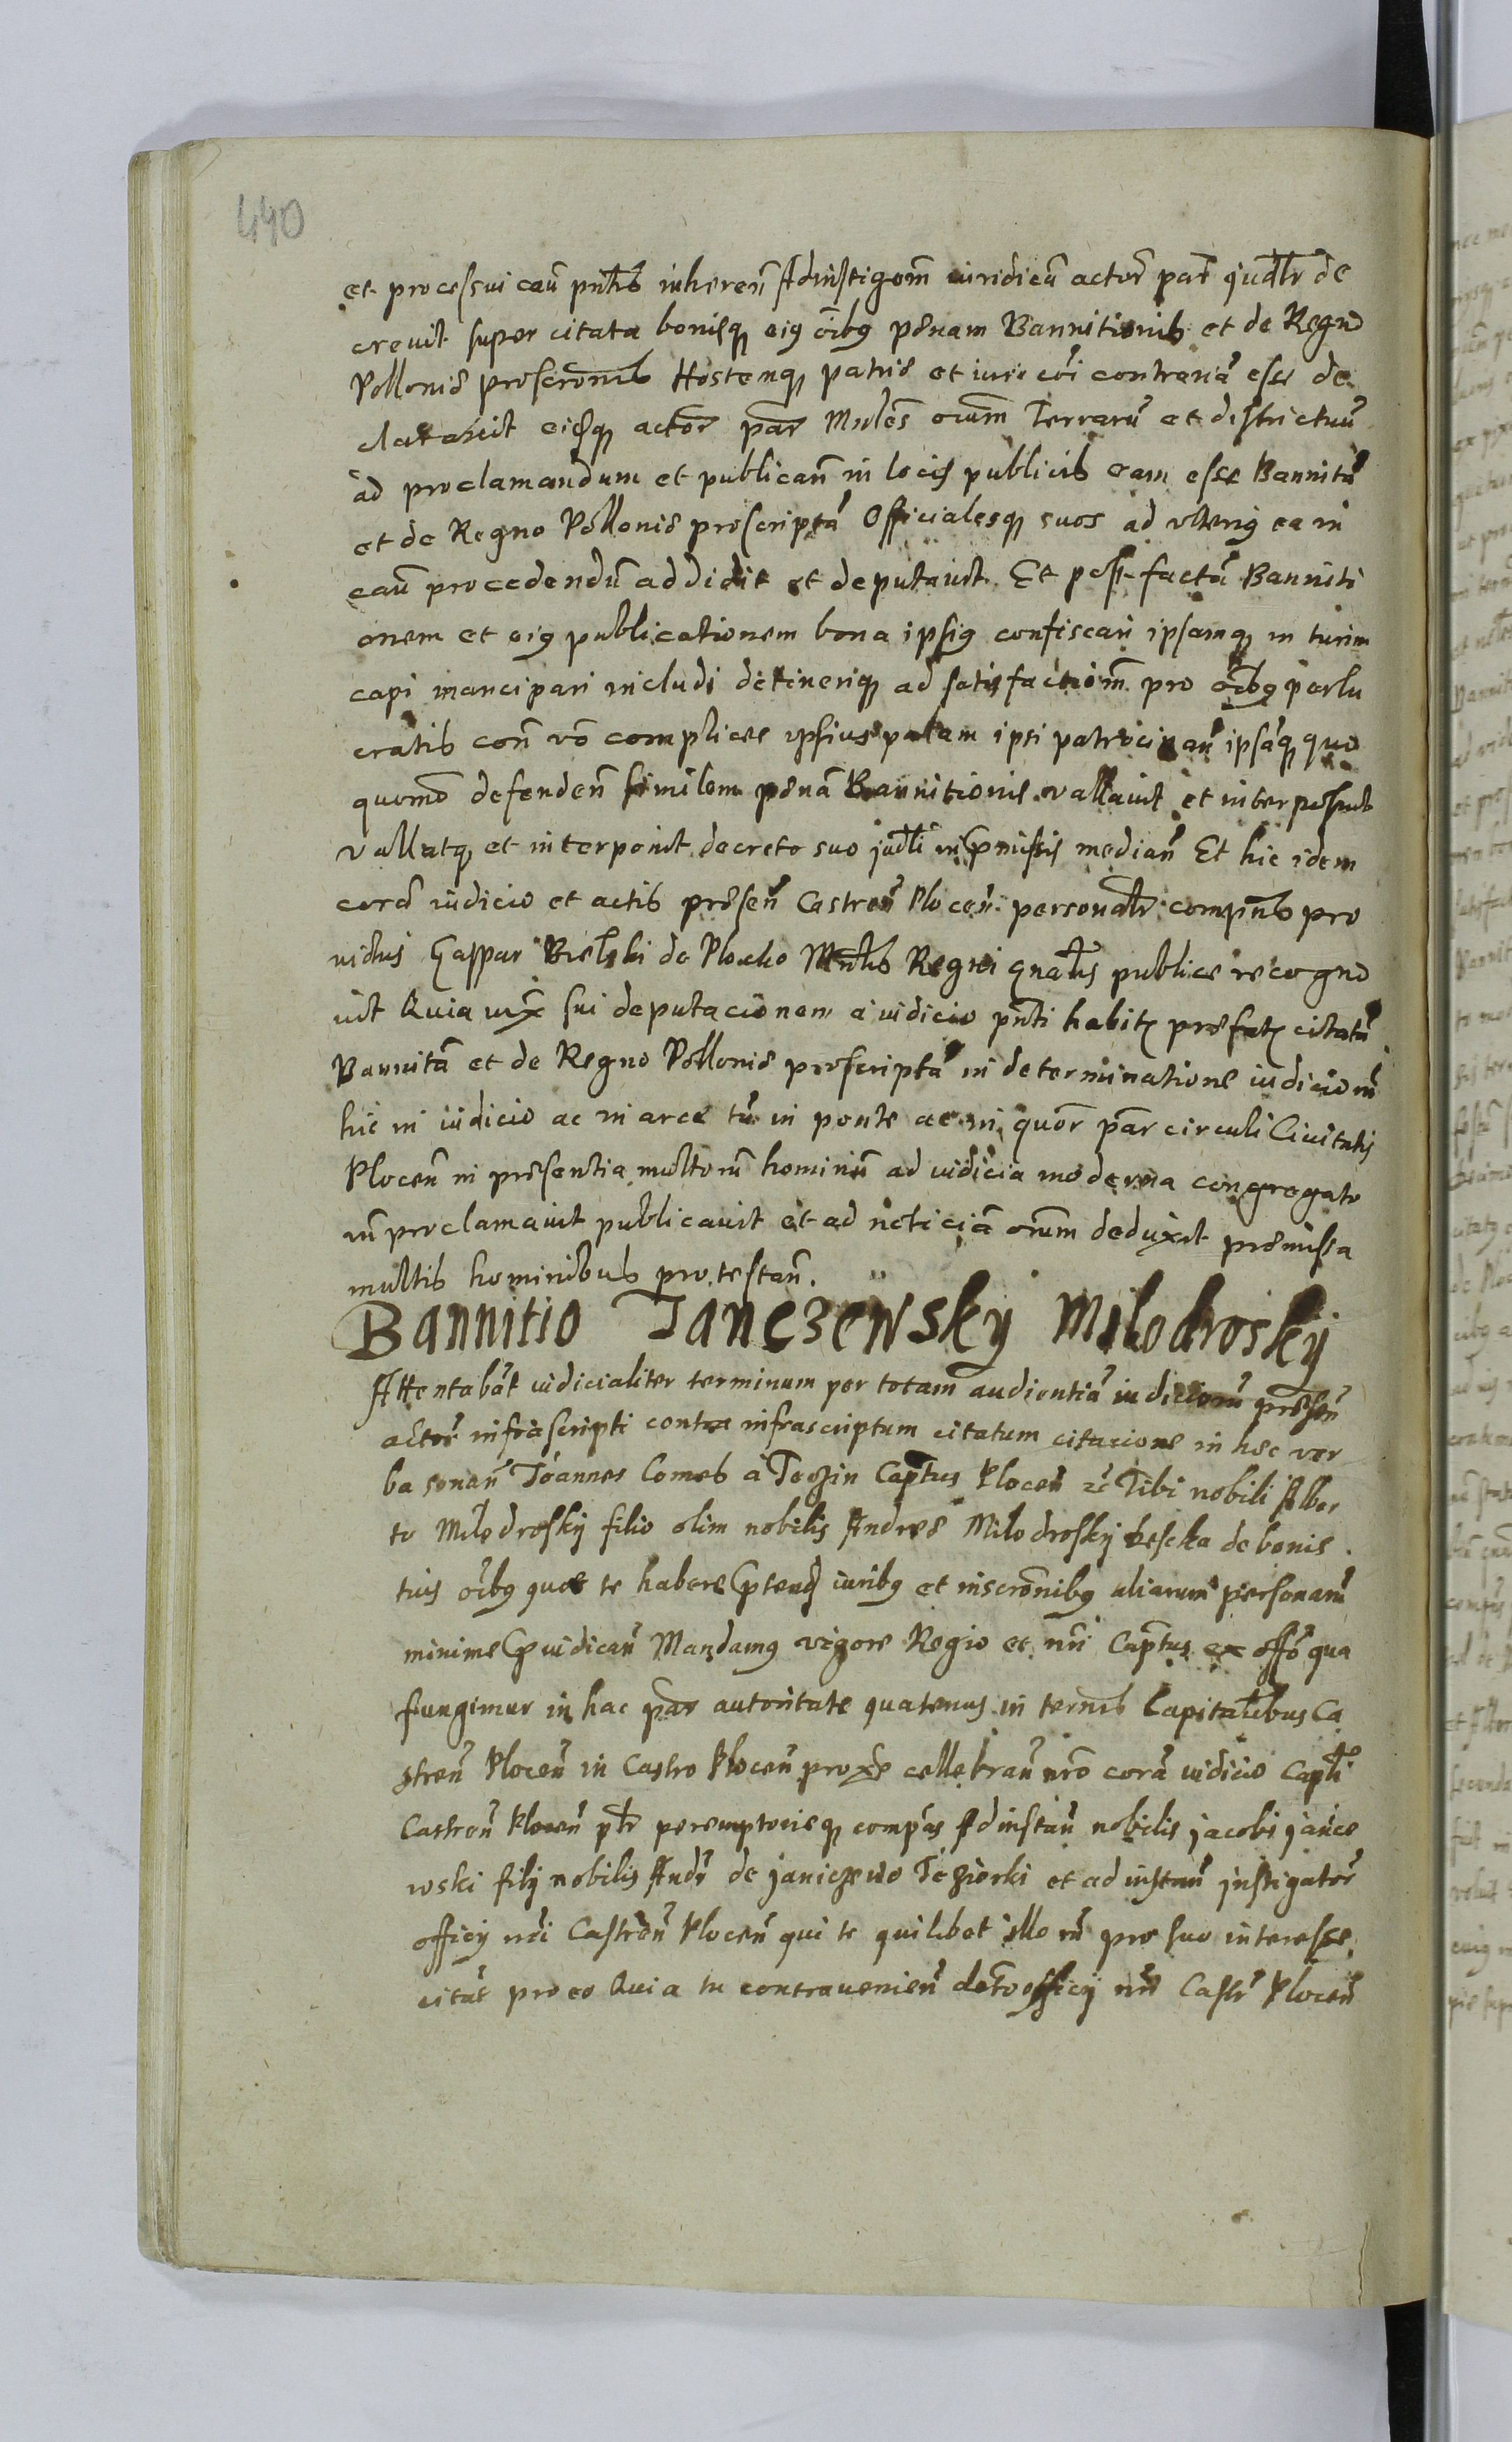 440
et processui cau᷉ pnt̃is inheren᷉ Ad instigõem iuridicã actor᷉ par᷉ judlr̃ de
crevit super citata bonisq̨ eiꝰ oĩbꝰ penam Bannitionis et de Regno
Pollonie proscrõnis Hostemq̨ patrie et iuri cõi contrariã esse de
claravit eisq̨ actor᷉ par᷉ Mnles᷉ oium᷉ Terrarũ et districtuũ
ad proclamandum et publican᷉ in locis publicis eam esse Bannitã
et de Regno Pollonie proscriptã Officialesq̨ suos ad ulteriꝰ ea in
cau᷉ procedendũ addidit et deputavit. Et post factã Banniti
onem et eiꝰ publicationem bona ipsiꝰ confiscari ipsamq̨ in turim
capi mancipari includi detinerique ad satisfactiõm pro oĩbꝰ perlu
cratis con᷉ võ complices ipsius palam ipsi patrocinan᷉ ipsãq̨ quo
quomõ defenden᷉ similem penã Bannitionis vallavit et interposuit
vallatq̨ et interponit decreto suo judlĩ in p̱missis median᷉ Et hic idem
corã iudicio et actis presen᷉ Castren᷉ Plocen᷉ personalr̃ compñs pro
vidus Gaspar Bielski de Plocko Mnt̃is Regni gnalis᷉ publice recogno
vit Quia iux᷉ sui deputacionem a iudicio pnt̃i habitȩ prefatȩ citatã
Bannitã et de Regno Pollonie proscriptã in determinatione iudiciorũ
hic in iudicio ac in arce tũ in ponte ac in quor᷉ par᷉ circuli Civitatis
Plocen᷉ in presentia multorũ hominũ ad iudicia moderna congregato
rũ proclamavit publicavit et ad noticiã oium᷉ deduxit premissa
multis hominibus protestan᷉.
Bannitio Janczewsky Milodrosky
Attentabãt iudicialiter terminum per totam audientiã iudiciorũ presen᷉
actor᷉ infrascripti contra infrascriptum citatum citacione in hec ver
ba sonan᷉ Joannes Comes a Teczin Capt̃us Plocen᷉ ec᷉ Tibi nobili Alber
to Milodrosky filio olim nobilis Andree Milodrosky de bonis
tuis oĩbꝰ que te habere p̱tend᷉ iuribꝰ et inscrõnibꝰ aliarum personarũ
minime p̱iudican᷉ Mandamꝰ vigore Regio et nr̃i Capt̃us ex offõ qua
fungimur in hac par᷉ autoritate quatenus in ternis᷉ Capitalibus Ca
stren᷉ Plocen᷉ in Castro Plocen᷉ prox᷉e cellebran᷉ nr̃o corã iudicio Capli᷉
Castren᷉ Plocen᷉ plr̃ peremptorieq̨ compãs Ad instan᷉ nobilis jacobi jance
wski filij nobilis And᷉r de janiczewo Jeziorki et ad instan᷉ instigator᷉
officij nr̃i Castren᷉ Plocen᷉ qui te quilibet illorũ pro suo interesse
citãt pro eo Quia tu contravenien᷉ decr̃o officij nr̃i Castr᷉ Plocen᷉